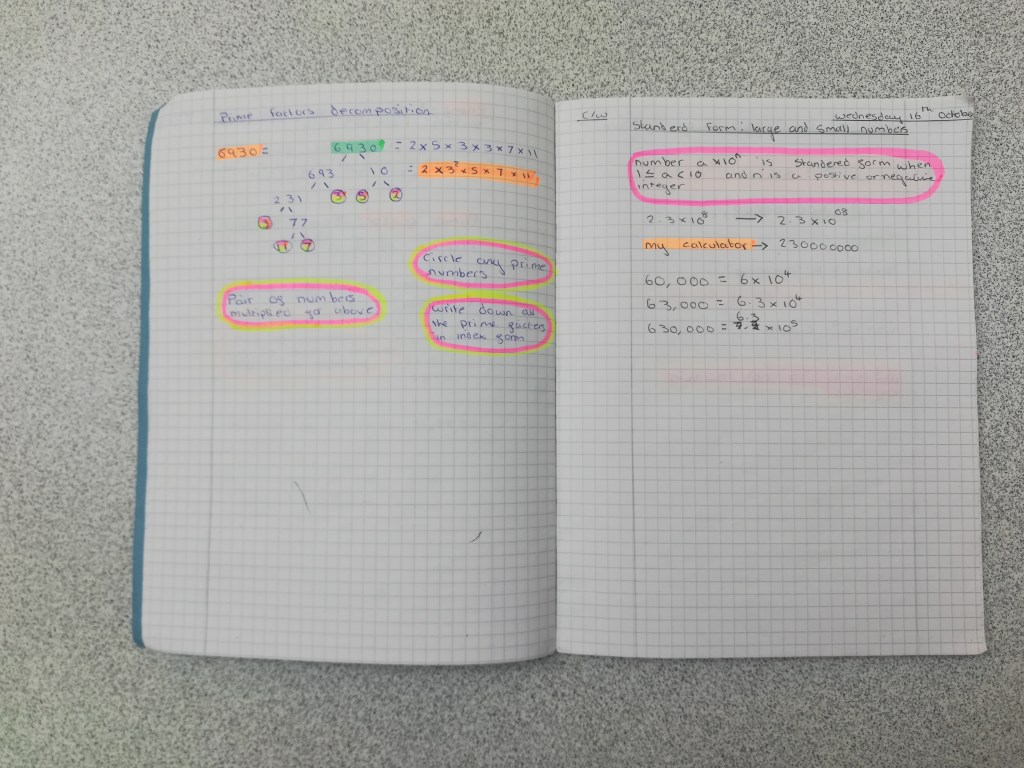 Prime factors decomposition
6930 = 6930 = 2 × 5 × 3 × 3 × 7 × 11
693 10 = 2 × 3² × 5 × 7 × 11
231 3 5 2
3 77
11 7
Circle any prime
numbers
Pair of numbers
multiplied go above
Write down all
the prime factors
in index form
C/W Wednesday 16th October
Standerd form: large and small numbers
number a × 10ⁿ is standered form when
1 ≤ a < 10 and n is a postive or negative
integer
2.3 × 10⁸ → 2.3 × 10⁰⁸
my calculator → 230000000
60,000 = 6 × 10⁴
63,000 = 6.3 × 10⁴
6.3
630,000 = × 10⁵